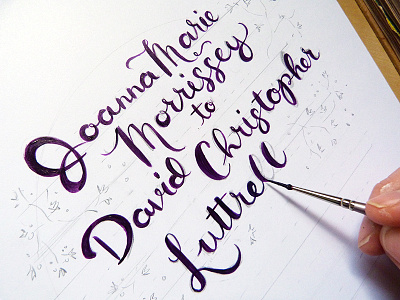 Joanna Marie
Morrissey
to
David Christopher
Luttrell